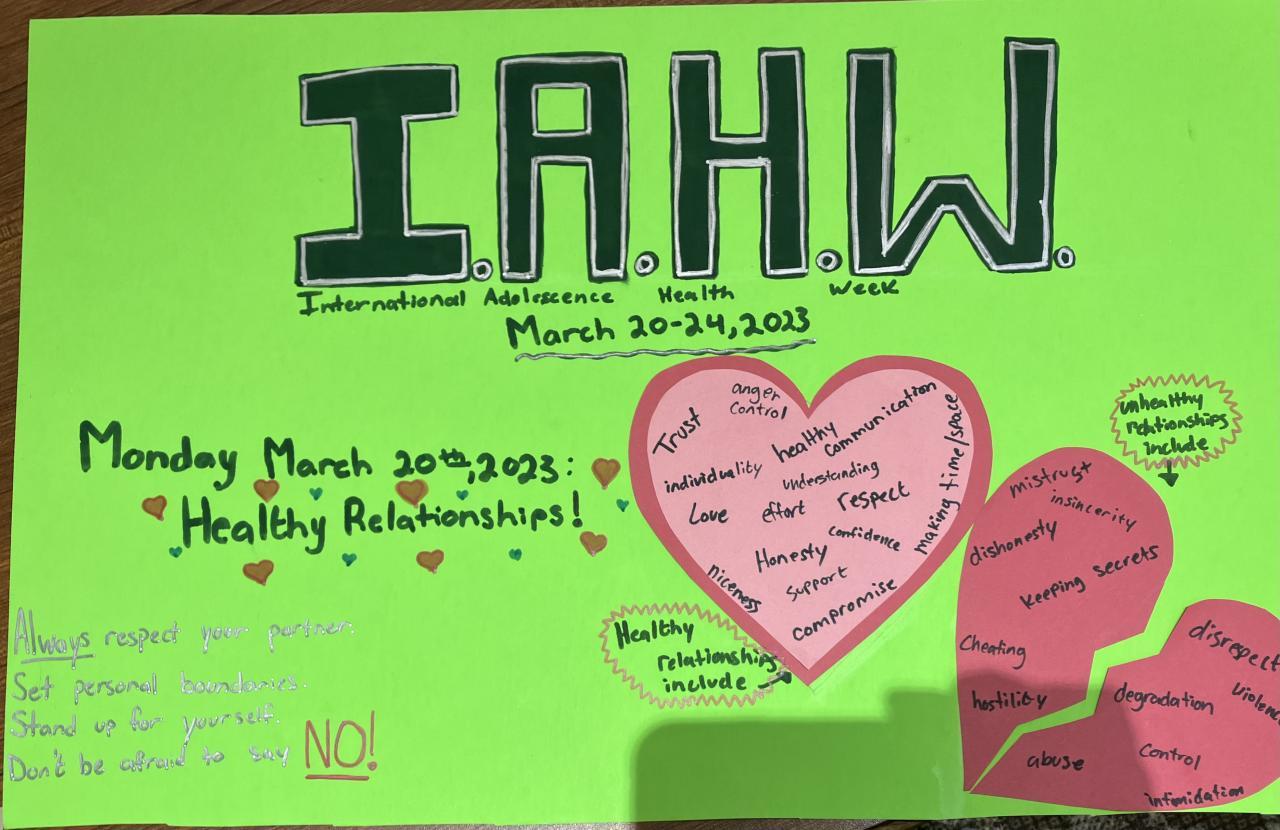 I.A.H.W.
International Adolescence Health Week
March 20-24, 2023
Monday March 20th, 2023:
Healthy Relationships!
Always respect your partner.
Set personal boundaries.
Stand up for yourself.
Don't be afraid to say NO!
Healthy
relationships
include
anger
control
Trust
healthy
communication
making time/space
individuality
understanding
Love
effort
respect
confidence
Honesty
niceness
support
compromise
unhealthy
relationships
include
mistrust
insincerity
dishonesty
keeping secrets
Cheating
hostility
disrespect
degradation
abuse
Control
intimidation